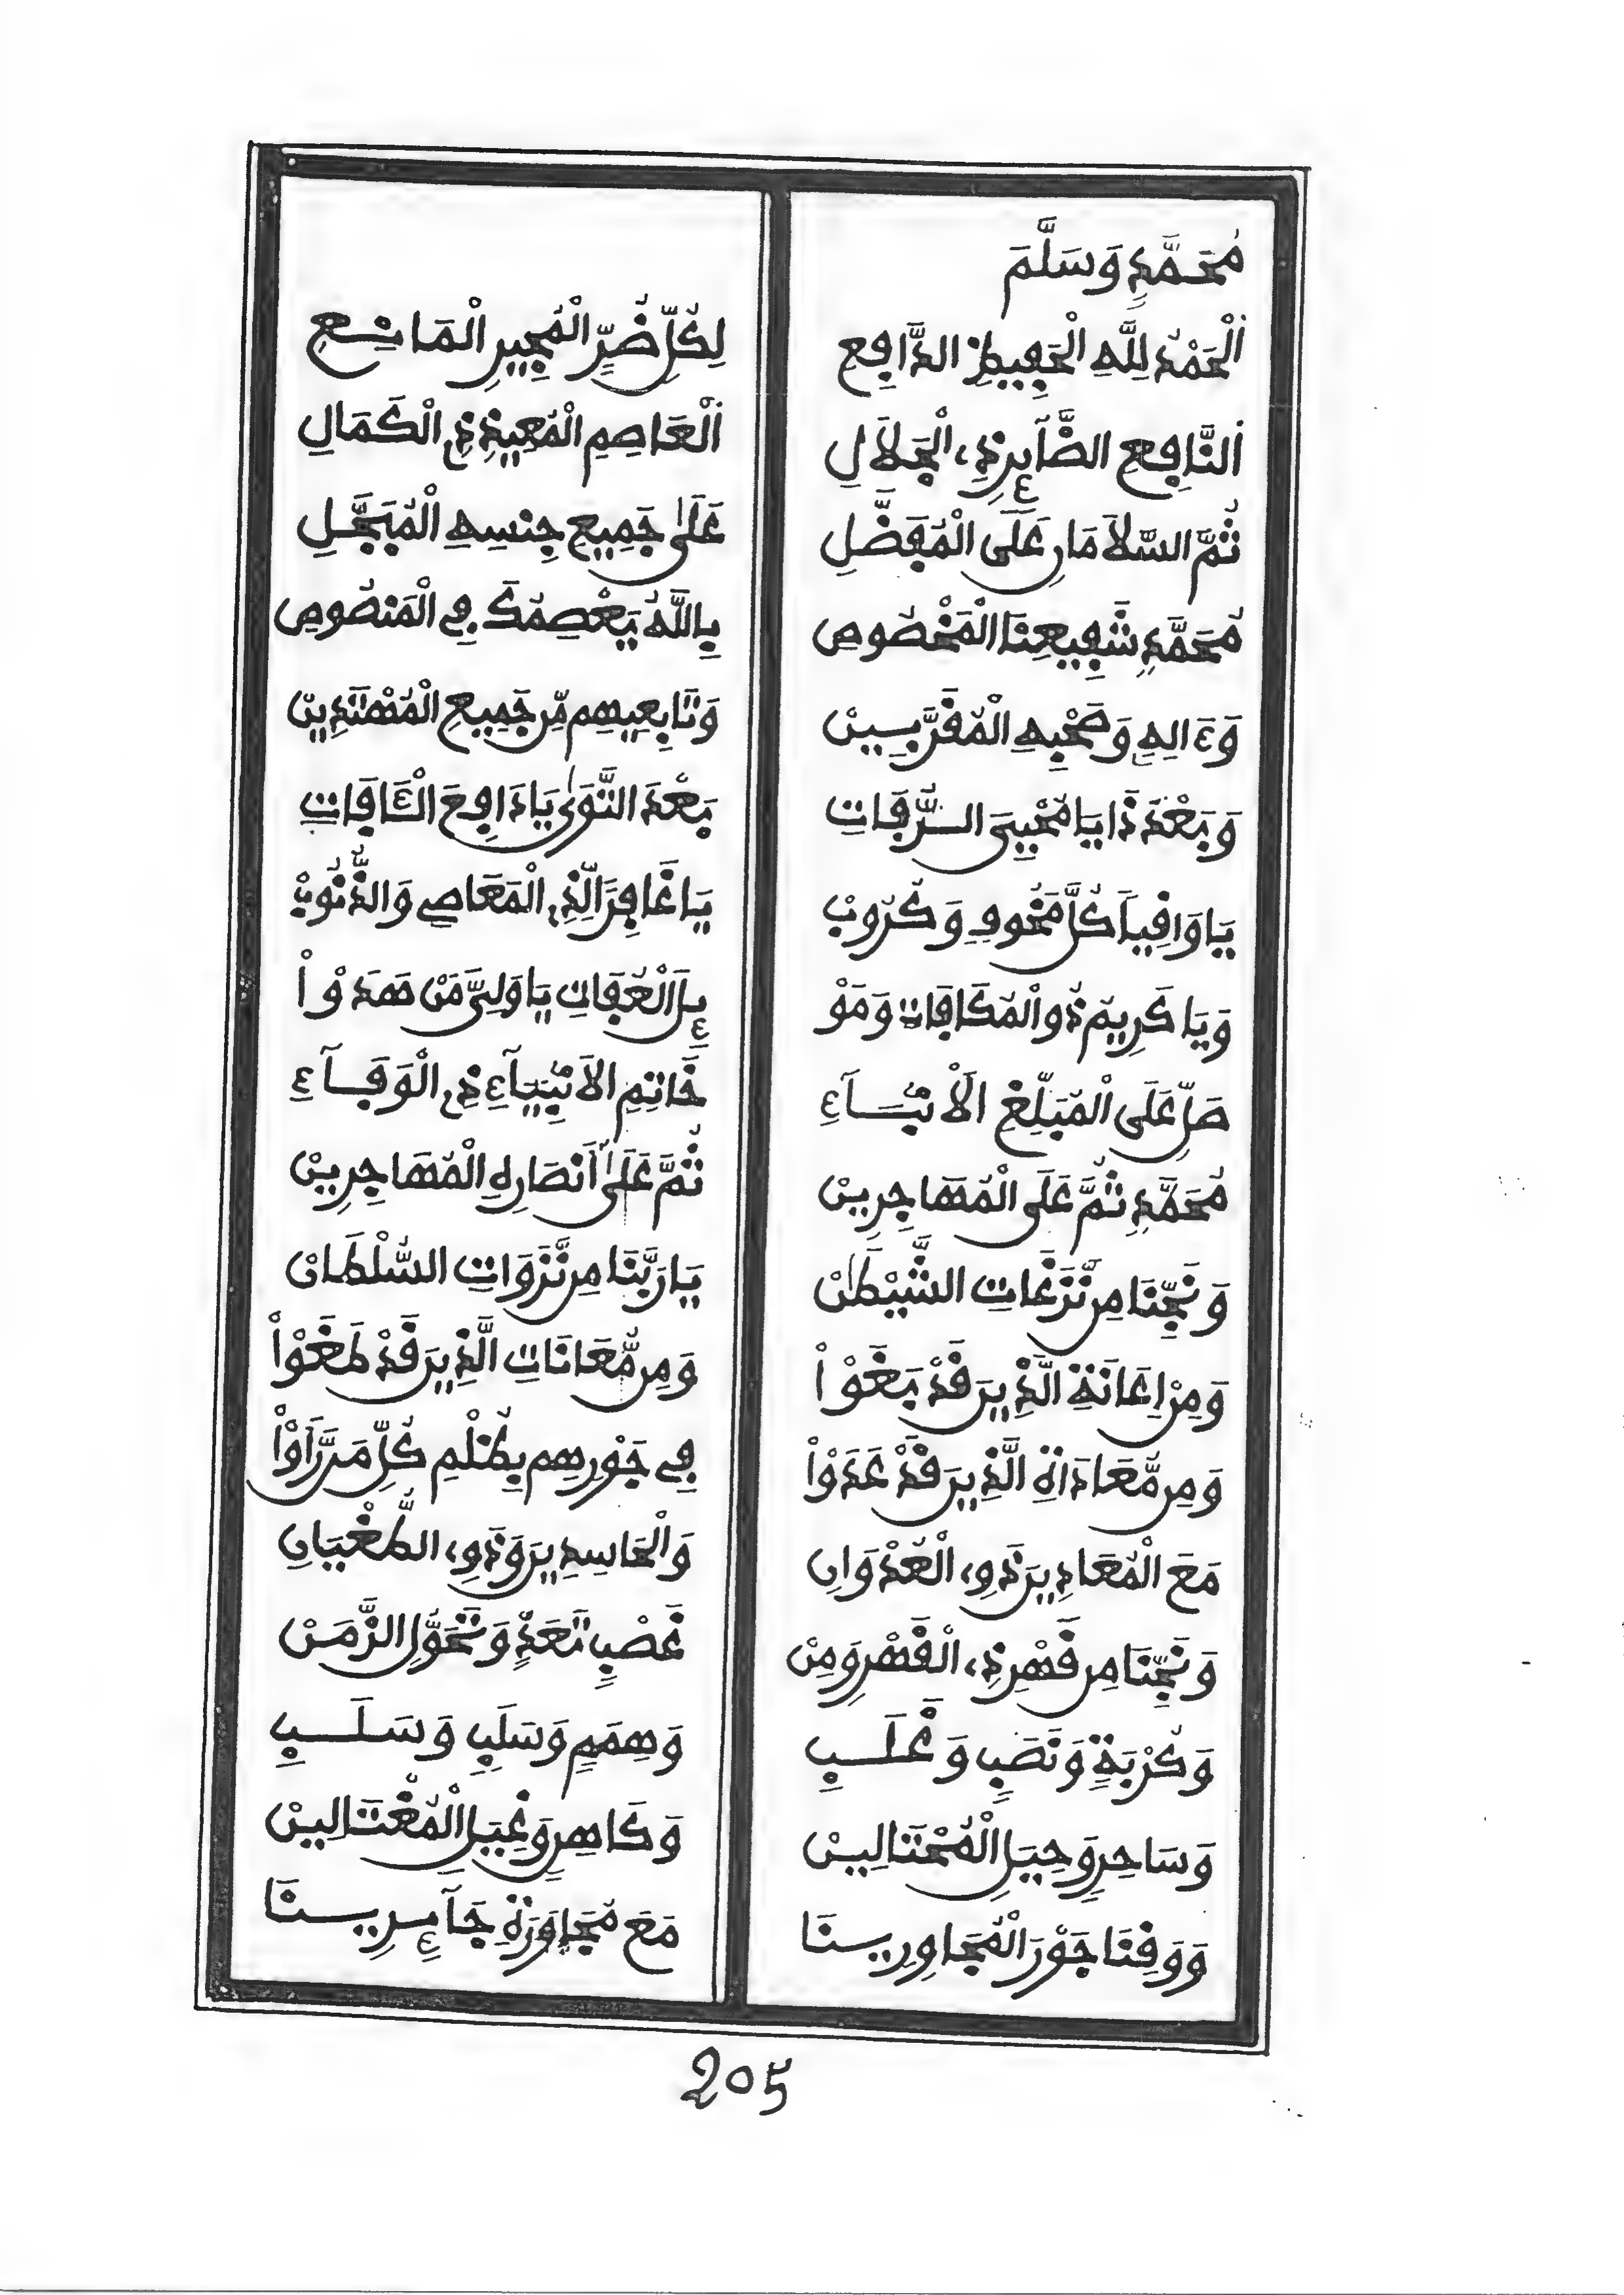 مُحَمَّدٍ وَسَلَّمَ
اَلْحَمْدُ لِلَّهِ الْحَفِيظِ الدَّافِعِ لِكُلِّ ضُرٍّ الْمُجِيرِ الْمَانِعِ
اَلنَّافِعِ الضَّآئِرِ ذِي الْجَلَالِ اَلْعَاصِمِ الْمُعِيذِ ذِي الْكَمَالِ
ثُمَّ السَّلَامَانِ عَلَى الْمُفَضَّلِ عَلَىٰ جَمِيعِ جِنْسِهِ الْمُبَجَّلِ
مُحَمَّدٍ شَفِيعِنَا الْمَخْصُوصِ بِاللَّهُ يَعْصِمُكَ فِي الْمَنْصُوصِ
وَءَالِهِ وَصَحْبِهِ الْمُقَرَّبِينْ وَتَابِعِيهِم مِّن جَمِيعِ الْمُهْتَدِينْ
وَبَعْدَ ذَا يَا مُحْيِيَ الرُّفَاتِ بَعْدَ التَّوَىٰ يَا دَافِعَ الْـَٔافَاتِ
يَا وَاقِيًا كُلَّ مَخُوفٍ وَكُرُوبْ يَا غَافِرًا لِّذِي الْمَعَاصِي وَالذُّنُوبْ
وَيَا كَرِيمُ ذُو الْمُكَافَاتِ وَمَوْ ئِلَ الْعُفَاتِ يَا وَلِيَّ مَنْ هَدَوْا
صَلِّ عَلَى الْمُبَلِّغِ الْأَنْبَآءِ خَاتِمِ الَانْبِيَآءِ ذِي الْوَفَآءِ
مُحَمَّدٍ ثُمَّ عَلَى الْمُهَاجِرِينْ ثُمَّ عَلَىٰٓ أَنْصَارِهِ الْمُهَاجِرِينْ
وَنَجِّنَا مِن نَّزَغَاتِ الشَّيْطَٰنْ يَا رَبَّنَا مِن نَّزَوَاتِ السُّلْطَانْ
وَمِنْ إِعَانَةِ الَّذِينَ قَدْ بَغَوْاْ وَمِن مُّعَانَاتِ الَّذِينَ قَدْ طَغَوْاْ
وَمِن مُّعَادَاةِ الَّذِينَ قَدْ عَدَوْاْ فِي جَوْرِهِم بِظُلْمِ كُلِّ مَن رَّأَوْاْ
مَعَ الْمُعَادِينَ ذَوِي الْعُدْوَانِ وَالْحَاسِدِينَ وَذَوِي الطُّغْيَانِ
وَنَجِّنَا مِن قَهْرِ ذِي الْقَهْرِ وَمِنْ غَصْبِ تَعَدٍّ وَتَحَوُّلِ الزَّمَنْ
وَكُرْبَةٍ وَنَصَبٍ وَغَلَبِ وَهِمَمٍ وَسَلَبٍ وَسَلَبِ
وَسَاحِرٍ وَحِيَلِ الْمُحْتَالِينْ وَكَاهِنٍ وَغِيَلِ الْمُغْتَالِينْ
وَوَقِنَا جَوْرَ الْمُجَاوِرِينَا مَعَ مُجَاوَرَةِ جَآئِرِينَا
205